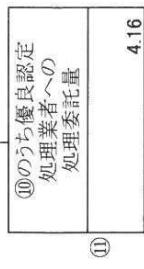 ⑩のうち優良認定
処理業者への
処理委託量
⑪
4.16